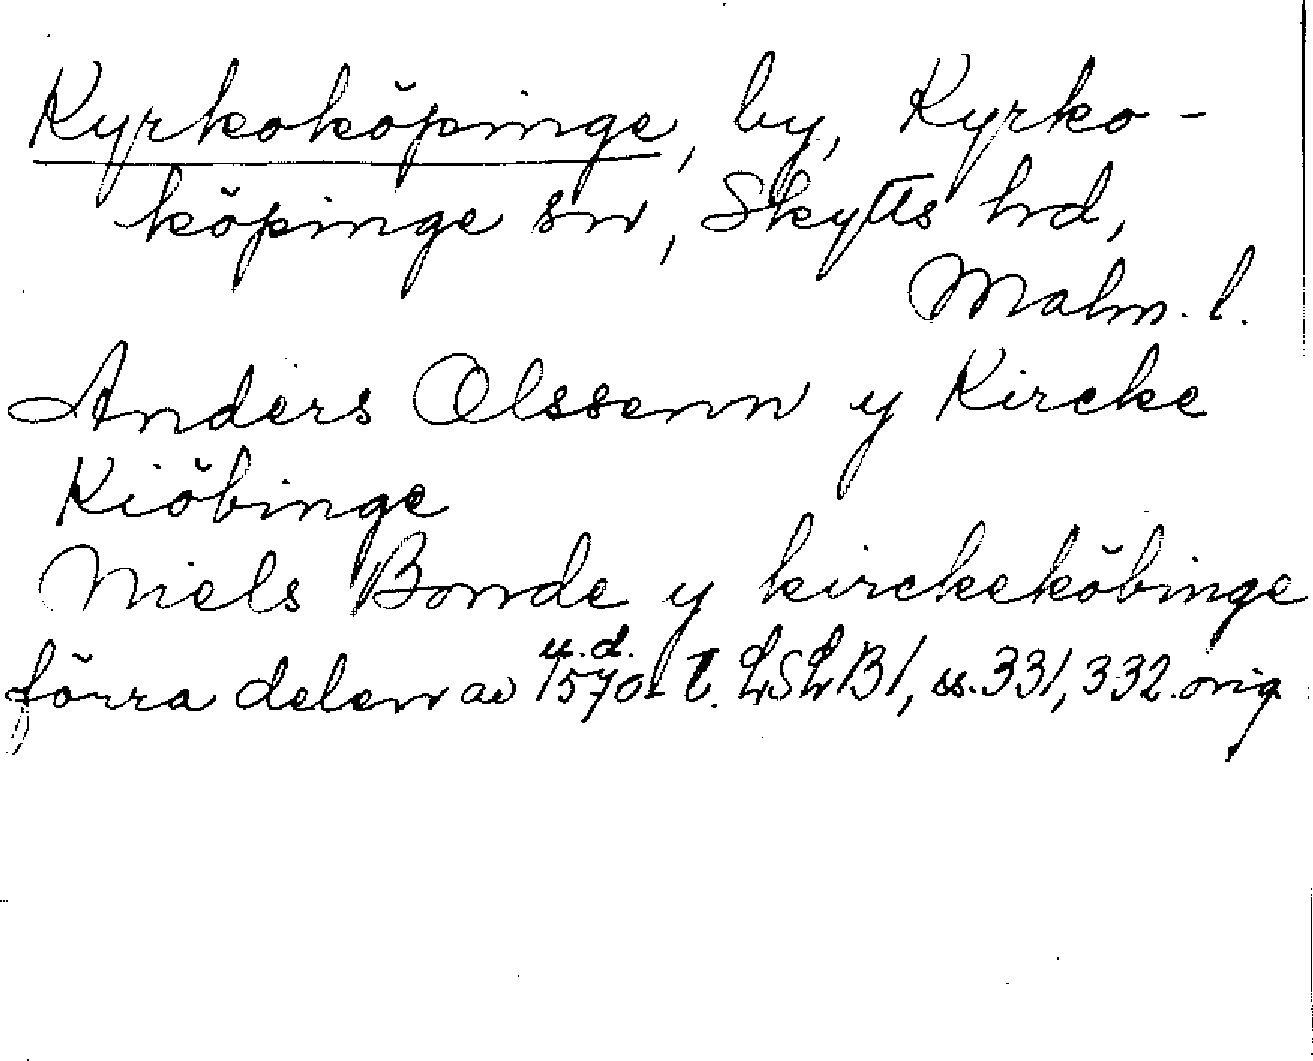 Kyrkoköpinge, by, Kyrko-
köpinge sn, Skytts hd,
Malm. l.
Anders Olssenn y Kircke
Kiöbinge
Niels Bonde y kirckeköbinge
u.d.
förra delen av 1570-t. LSLB1, ss. 331, 332. orig.